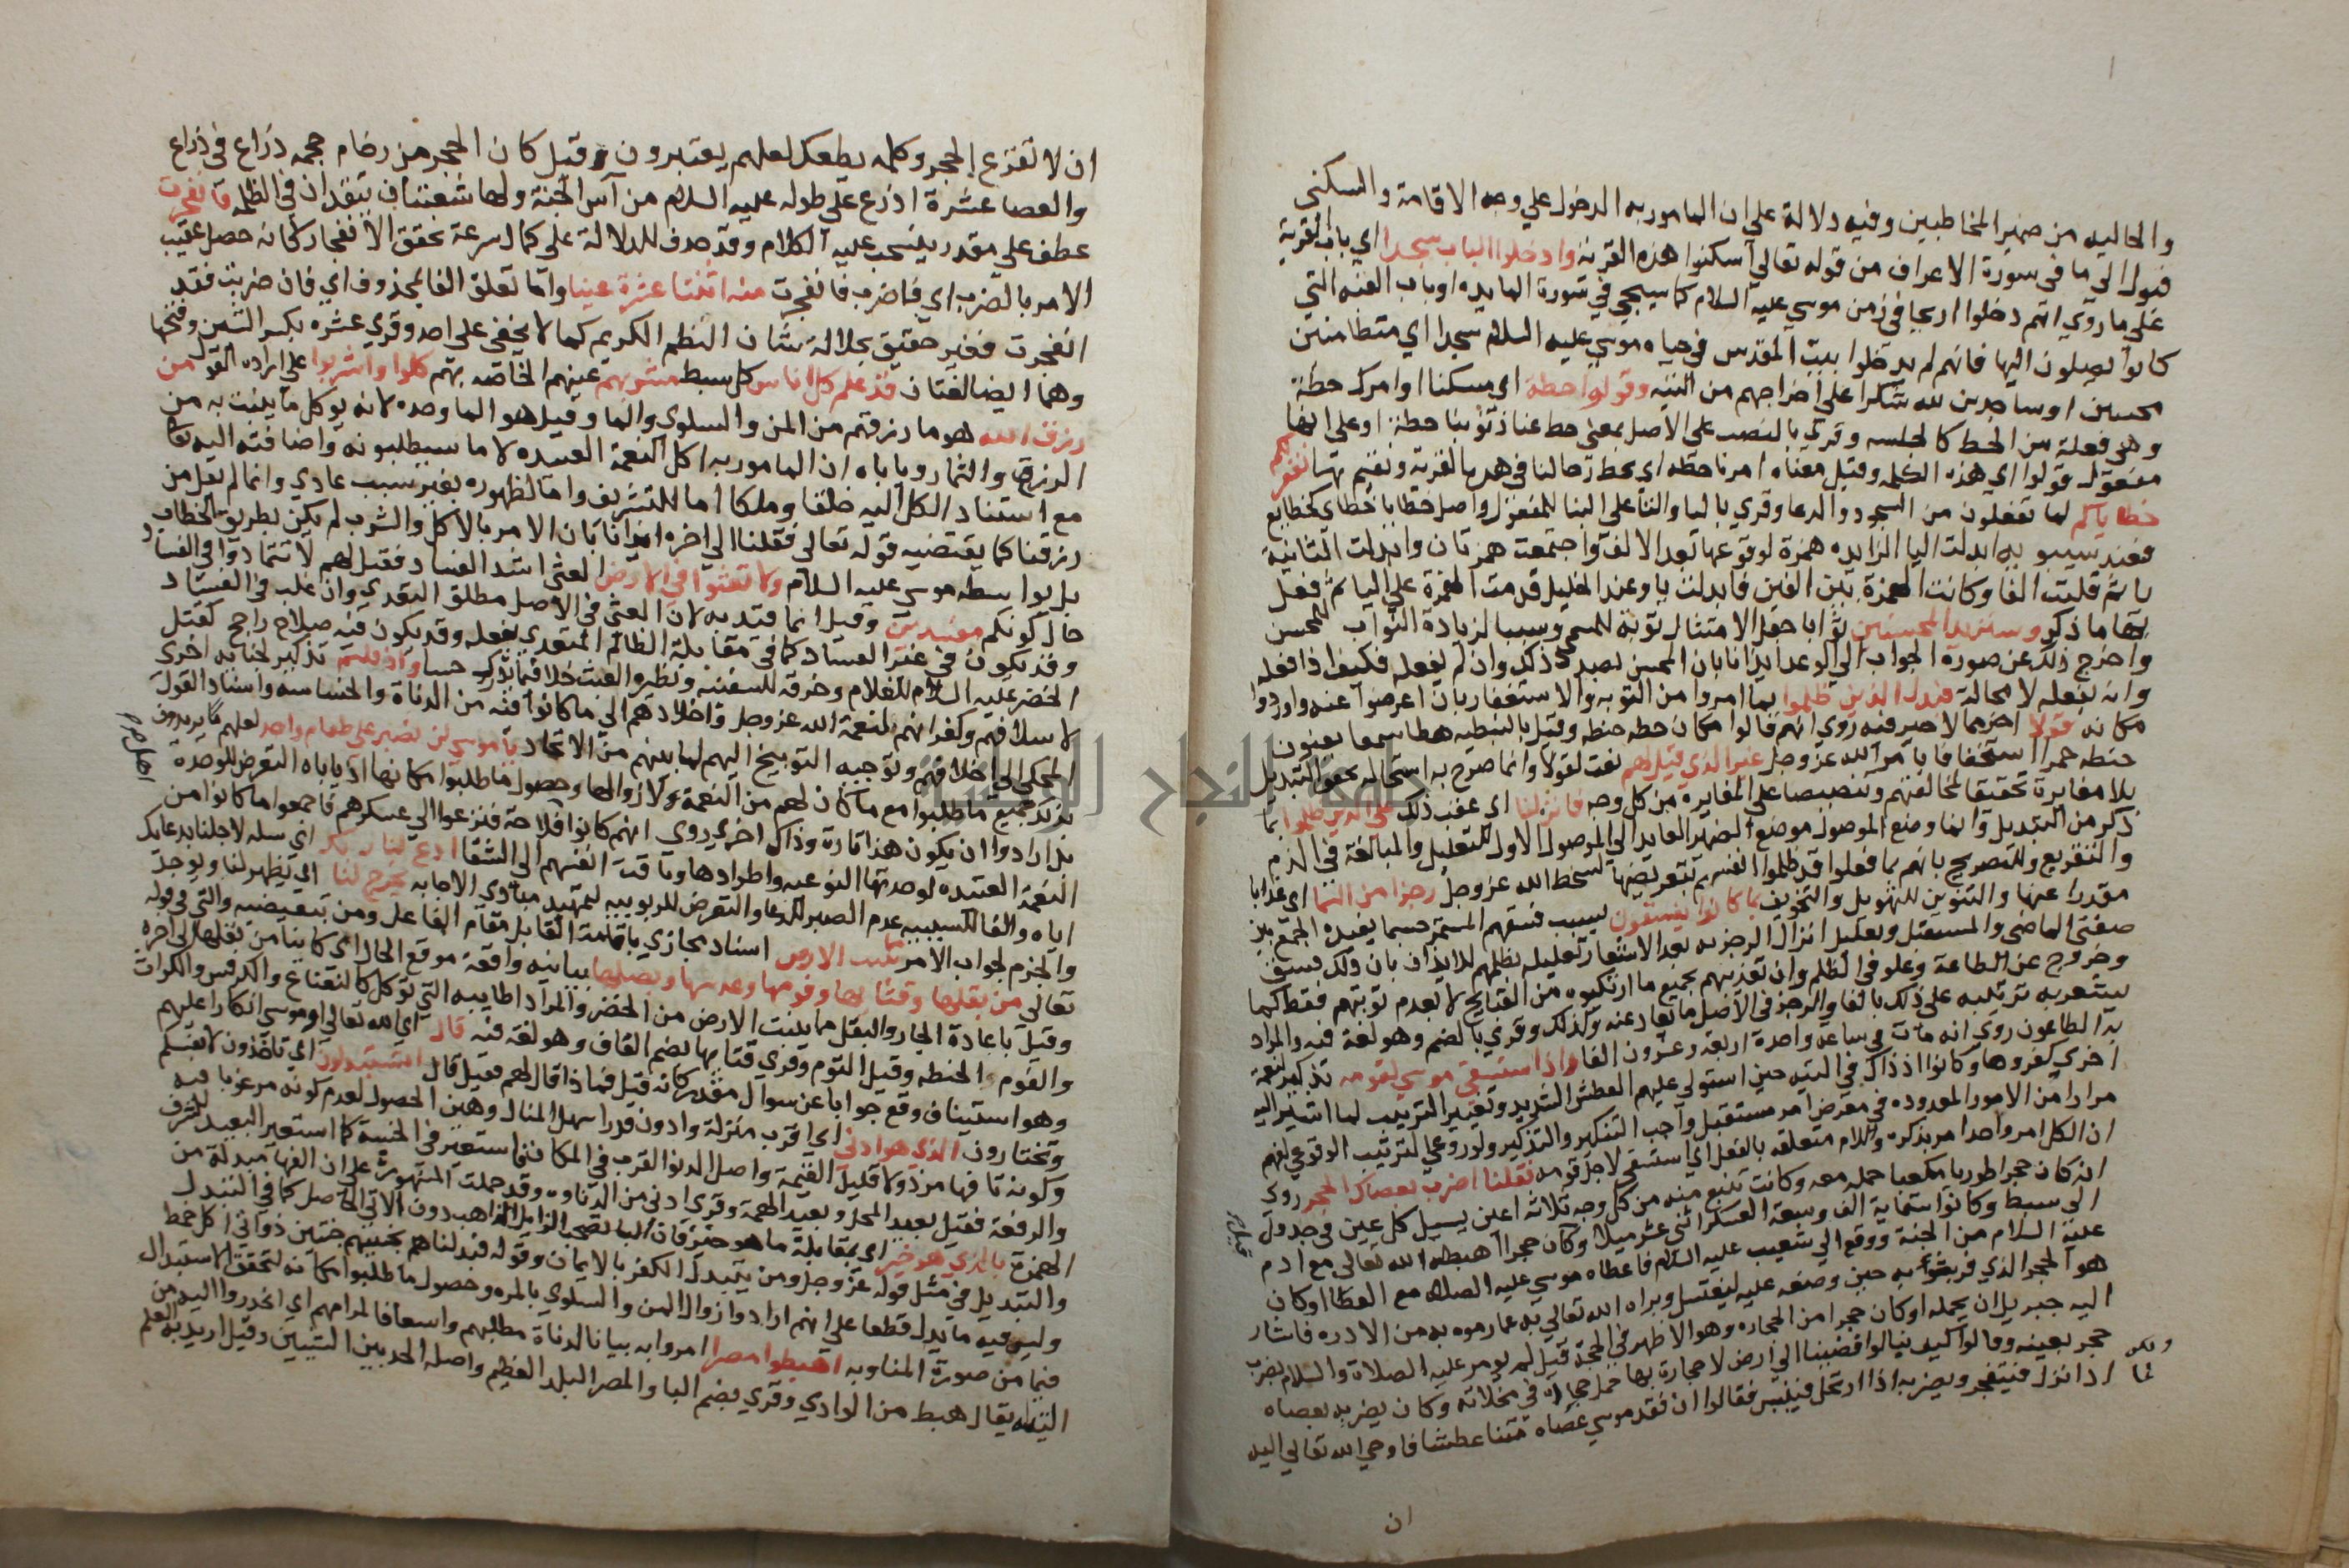 والحاليه من ضمير المخاطبين وفيه دلالة علي ان المامور به الدخول علي وجه الاقامة والسكني
فيول الي ما في سورة الاعراف من قوله تعالي اسكنوا هذه القرية وادخلوا الباب سجدا اي باب القرية
علي ما روي انهم دخلوا اريحا في زمن موسي عليه السلام كما سيجي في سورة المايده او باب القبه التي
كانوا يصلون اليها فانهم لم يدخلوا بيت المقدس في حياه موسي عليه السلام سجدا اي متطامنين
مخبتين او ساجدين لله شكرا علي اخراجهم من التيه وقولوا حطة اي مسئلتنا او امرك حطة
وهي فعلة من الحط كالجلسه وقري بالنصب علي الاصل بمعني حط عنا ذنوبنا حطة او علي انها
مفعول قولوا اي هذه الكلمه وقيل معناه امرنا حطه اي نحط رحالنا في هذه القرية ونقيم بها نغفر لكم
خطاياكم لما تفعلون من السجود والدعا وقري باليا والتا علي البنا للمفعول واصل خطايا خطاي كخطايع
فعند سيبويه ابدلت اليا الزايده همزة لوقوعها بعد الالف واجتمعت همزتان وابدلت الثانية
يا ثم قلبت الفا وكانت الهمزة بين الفين فابدلت يا وعند الخليل قدمت الهمزة علي اليا ثم فعل
بها ما ذكر وسنزيد المحسنين ثوابا جعل الامتثال توبة للمسي وسببا لزيادة الثواب للمحسن
واخرج ذلك عن صورة الجواب الي الوعد ايذانا بان المحسن بصدد ذلك وان لم يفعله فكيف اذا فعله
وانه يفعله لا محالة فبدل الذين ظلموا بما امروا من التوبه والاستغفار بان اعرضوا عنه واوردوا
مكانه قولا اخر مما لا خير فيه روي انهم قالوا مكان حطه حنطه وقيل بالنبطيه هطا سمعا يعنون
حنطه حمرا استخفافا بامر الله عز وجل غير الذي قيل لهم نعت لقولا وانما صرح به استحاله تحقق التبديل
بلا مغايرة تحقيقا لمخالفتهم وتنصيصا علي المغايره من كل وجه فانزلنا اي عقب ذلك علي الذين ظلموا بما
ذكر من التبديل وانما وضع الموصول موضع الضمير العايد الي الموصول الاول للتعليل والمبالغة في الذم
والتقريع وللتصريح بانهم بما فعلوا قد ظلموا انفسهم بتعريضها لسخط الله عز وجل رجزا من السما اي عذابا
مقدرا عنها والتنوين للتهويل والتخويف بما كانوا يفسقون بسبب فسقهم المستمر حسبما يفيده الجمع بين
صفتي الماضي والمستقبل وتعليل انزال الرجز به بعد الاشعار بتعليله بظلمهم للايذان بان ذلك فسق
وخروج عن الطاعة وغلو في الظلم وان تعذيبهم بجميع ما ارتكبوه من القبايح لا بعدم توبتهم فقط كما
يشعر به ترتيبه علي ذلك بالفا والرجز في الاصل ما يعاف عنه وكذلك وقري بالضم وهو لغة فيه والمراد
به الطاعون روي انه مات في ساعه واحدة اربعة وعشرون الفا واذ استسقي موسي لقومه تذكير لنعمة
اخري كفروها وكانوا اذ ذاك في التيه حين استولي عليهم العطش الشديد وتغيير الترتيب لما اشير اليه
مرارا من الامور المعدوده في معرض امر مستقل واجب التذكير والتذكر ولو روعي لترتيب الوقوعي لفهم
ان الكل امر واحد امر بذكره واللام متعلقه بالفعل اي استسقي لاجل قومه فقلنا اضرب بعصاك الحجر روي
انه كان حجرا طوريا مكعبا حمله معه وكانت تنبع منه من كل وجه ثلاثه اعين يسيل كل عين في جدول
الي سبط وكانوا ستمايه الف وسعة العسكر اثني عشر ميلا وكان حجرا اهبطه الله تعالي مع ادم
عليه السلام من الجنة ووقع الي شعيب عليه السلام فاعطاه موسي عليه الصلاه مع العصا او كان
هو الحجر الذي فر بثوبه حين وضعه عليه ليغتسل وبراه الله تعالي به عما رموه به من الادره فاشار
اليه جبريل ان يحمله او كان حجرا من الحجاره وهو الاظهر في الحجة قيل لم يومر عليه الصلاة والسلام بضرب
حجر بعينه وقالوا كيف بنا لو افضينا الي ارض لا حجارة بها حمل حجارة في مخلاته وكان يضربه بعصاه
اذا نزل فينفجر ويضربه اذا ارتحل فييبس فقالوا ان فقد موسي عصاه متنا عطشا فاوحي الله تعالي اليه
ان
ان لا تقرع الحجر وكلمه يطعك لعلهم يعتبرون وقيل كان الحجر من رخام حجمه ذراع في ذراع
والعصا عشرة اذرع علي طوله عليه السلام من آس الجنة ولها شعبتان تتقدان في الظلمه فانفجرت
عطف علي مقدر ينسحب عليه الكلام وقد حذف للدلالة علي كمال سرعة تحقق الانفجار كانه حصل عقيب
الامر بالضرب اي فاضرب فانفجرت منه اثنتا عشرة عينا واما تعلق الفا بمحذوف اي فان ضربت فقد
انفجرت فغير حقيق بجلالة شان النظم الكريم كما لا يخفي علي احد وقري عشره بكسر الشين وفتحها
وهما ايضا لغتان قد علم كل اناس كل سبط مشربهم عينهم الخاصه بهم كلوا واشربوا علي اراده القول من
رزق الله هو ما رزقتم من المن والسلوي والما وقيل هو الما وحده لانه يوكل ما ينبت به من
الزرق والثمار وياباه ان المامور به اكل النعمة العتيده لا ما سيطلبونه واضافته اليه تعا
مع استناد الكل اليه خلقا وملكا اما للتشريف واما لظهوره بغير سبب عادي وانما لم يقل من
رزقنا كما يقتضيه قوله تعالي فقلنا الي اخره ايذانا بان الامر بالاكل والشرب لم يكن بطريق الخطاب
بل بواسطه موسي عليه السلام ولا تعثوا في الارض العثي اشد الفساد فقيل لهم لا تتمادوا في الفساد
حال كونكم مفسدين وقيل انما قيد به لان العثي في الاصل مطلق التعدي وان غلب في الفساد
وقد يكون في غير الفساد كما في مقابلة الظالم المتعدي بفعله وقد يكون فيه صلاح راجح كقتل
الخضر عليه السلام للغلام وخرقه للسفينه ونظيره العيث خلا فيما يدرك حسا واذ قلتم تذكير لجنايه اخري
لاسلافهم وكفرانهم لنعمة الله عز وجل واخلادهم الي ما كانوا فيه من الدناة والخساسه واسناد القول
المحكي الي اخلافهم وتوجيه التوبيخ اليهم لما بينهم من الاتحاد يا موسي لن نصبر علي طعام واحد لعلهم لم يريدوا
بذلك جميع ما طلبوا مع ما كان لهم من النعمة ولا زوالها وحصول ما طلبوا مكانها اذ ياباه التعرض للوحدة
بل ارادوا ان يكون هذا تارة وذاك اخري روي انهم كانوا فلاحة فنزعوا الي عكرهم فاجموا ما كانوا من
النعمة العتيده لوحدتها النوعيه واطرادها وتاقت انفسهم الي الشقا ادع لنا ربك اي سله لاجلنا بدعايك
اياه والفا للسببيه عدم الصبر للدعا والتعرض للربوبيه لتمهيد مبادي الاجابه يخرج لنا اي يظهر لنا ويوجد
والجزم لجواب الامر مما تنبت الارض اسناد مجازي باقامة القابل مقام الفاعل ومن تبعيضيه والتي في قوله
تعالي من بقلها وقثائها وفومها وعدسها وبصلها بيانيه واقعة موقع الحال اي كاينا من بقلها الي اخره
وقيل باعادة الجار والبقل ما ينبت الارض من الخضر والمراد اطايبه التي توكل كالنعناع والكرفس والكراث
والفوم الحنطه وقيل الثوم وقري قثايها بضم القاف وهو لغة فيه قال اي الله تعالي او موسي انكارا عليهم
وهو استيناف وقع جوابا عن سوال مقدر كانه قيل فماذا قال لهم فقيل قال اتستبدلون اي تاخذون لانفسكم
وتختارون الذي هو ادني اي اقرب منزلة وادون قدرا سهل المنال وهين الحصول لعدم كونه مرغوبا فيه
وكونه تافها مرذولا قليل القيمة واصل الدنو القرب في المكان فاستعير في الخسة كما استعير البعيد للشرف
والرفعة فقيل بعيد المحل وبعيد الهمة وقري ادنا من الدناوه وقد حملت المشهورة علي ان الفها مبدلة من
الهمزة بالذي هو خير اي بمقابلة ما هو خير فان البا تصحب الزايل الذاهب دون الاتي الحاصل كما في التبدل
والتبديل في مثل قوله عز وجل ومن يتبدل الكفر بالايمان وقوله فبدلناهم بجنتيهم جنتين ذواتي اكل خمط
وليس فيه ما يدل قطعا علي انهم ارادوا زوال المن والسلوي بالمره وحصول ما طلبوا مكانه لتحقق الاستبدال
فيما من صورة المناوبه اهبطوا مصرا امروا به بيانا لدناة مطلبهم واسعافا لمرامهم اي انحدروا اليه من
التيه يقال هبط من الوادي وقري بضم البا والمصر البلد العظيم واصله الحد بين الشيئين وقيل اريد به العلم